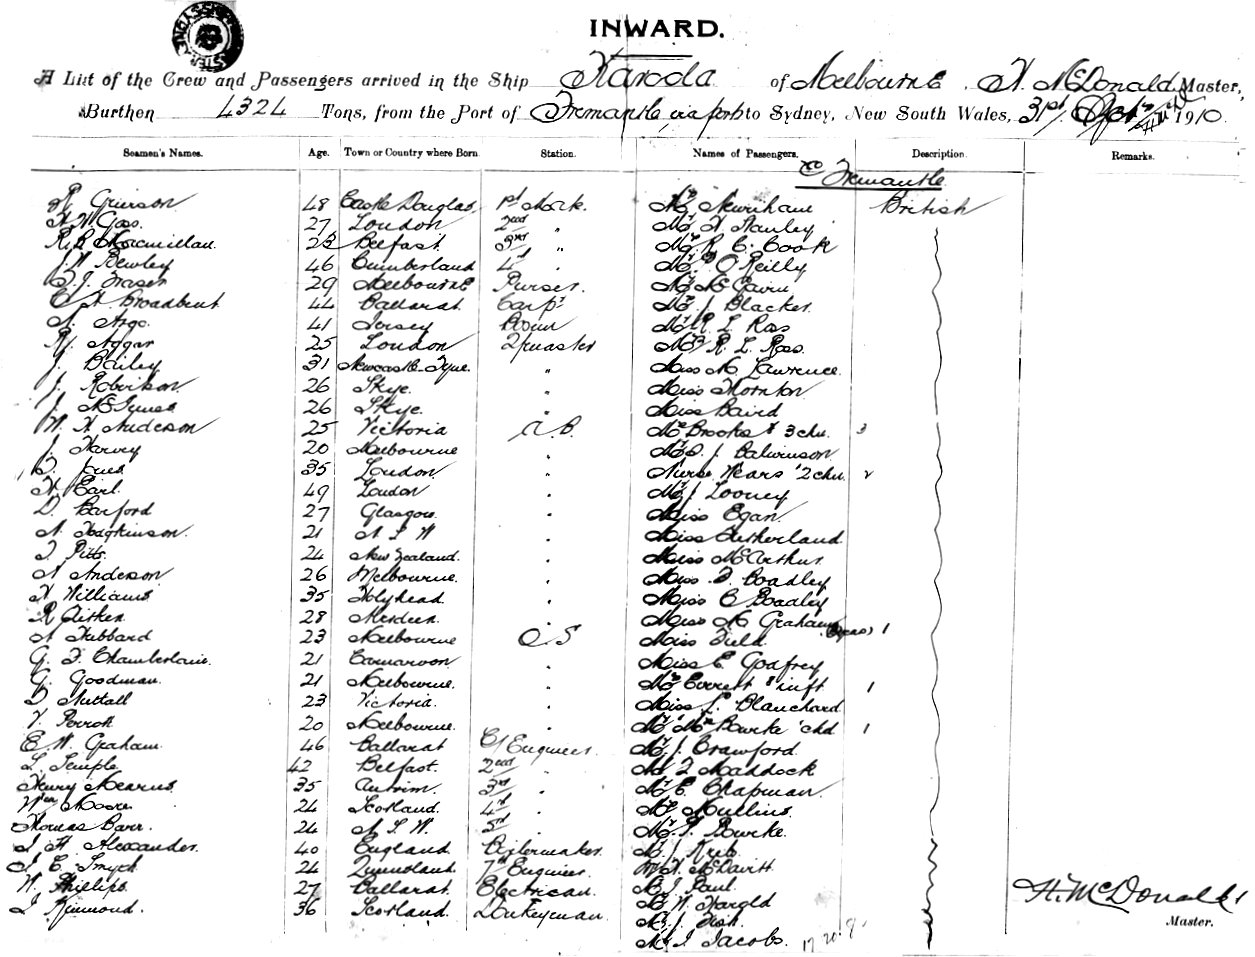 INWARD.
A List of the Crew and Passengers arrived in the Ship Karoola of Melbourne, H. McDonald Master,
Burthen 4324 Tons, from the Port of Fremantle via ports to Sydney, New South Wales, 31st 1910
Seamen's Names. Age. Town or Country where Born Station. Names of Passengers. Description. Remarks.
Fremantle
R Grierson 48 Castle Douglas 1st Mate. Mr Newnham British
27 London 2nd " Mr H Stanley
R. Macmillan 23 Belfast 3rd " Mr R C Cook
J. W Bewley 46 Cumberland 4th . Mr O'Reilly
J. Fraser 29 Melbourne Purser. Mr
C H Broadbent 44 Ballarat Carpr Mr J Blacker
41 Jersey Bosun Mr R L Ross
Aggar 25 London Qrmaster Mrs R. L Ross.
J. Bailey 31 Newcastle-Tyne. " Miss M Lawrence
J. Robertson 26 Skye. " Miss Thornton
J. McInnes 26 Skye. " Miss Baird
W. H Anderson 25 Victoria A.B. Mrs Brooks & 3 chn. 3
J. Harvey 20 Melbourne . Mr J.
Jones 35 London . Nurse Wears 2 chn 2
H Earl. 49 London . Mr J Looney
D. Barford 27 Glasgow. . Miss Egan
A Hodgkinson. 21 N S W . Miss Sutherland
Pitts. 24 New Zealand. . Miss McArthur
A Anderson 26 Melbourne. . Miss Boadley
H Williams 35 Holyhead . Miss C Boadley
R Aitken 28 Aberdeen . Miss M Graham
A Hubbard 23 Melbourne O.S Miss Field 1
G. F. Chamberlain. 21 Carnarvon . Miss E Godfrey
G. Goodman. 21 Melbourne. . Mrs Everett & inft 1
D Nuttall 23 Victoria. . Miss L Blanchard
V. Perrott 20 Melbourne. . Mr Mrs Bourke chd 1
E W. Graham 46 Ballarat C/Engineer. Mr J. Crawford
L. Temple 42 Belfast. 2nd . Mr Maddock
Henry Mearns 35 Antrim. 3rd . Mr E Chapman
Wm Moore 24 Scotland. 4th . Mr Mullins
Thomas Barr. 24 N S W. 5th . Mr Bourke.
J H. Alexander. 40 England Boilermaker. Mr J
J E. Smyth 24 Queensland 7th Engineer. Mr H. McDavitt
W. Phillips 27 Ballarat Electrican Mr J Paul
J Kinmond. 36 Scotland. Donkeyman Mr W Hargld
Mr J. Fish
Mr J Jacobs.
H. McDonald
Master.